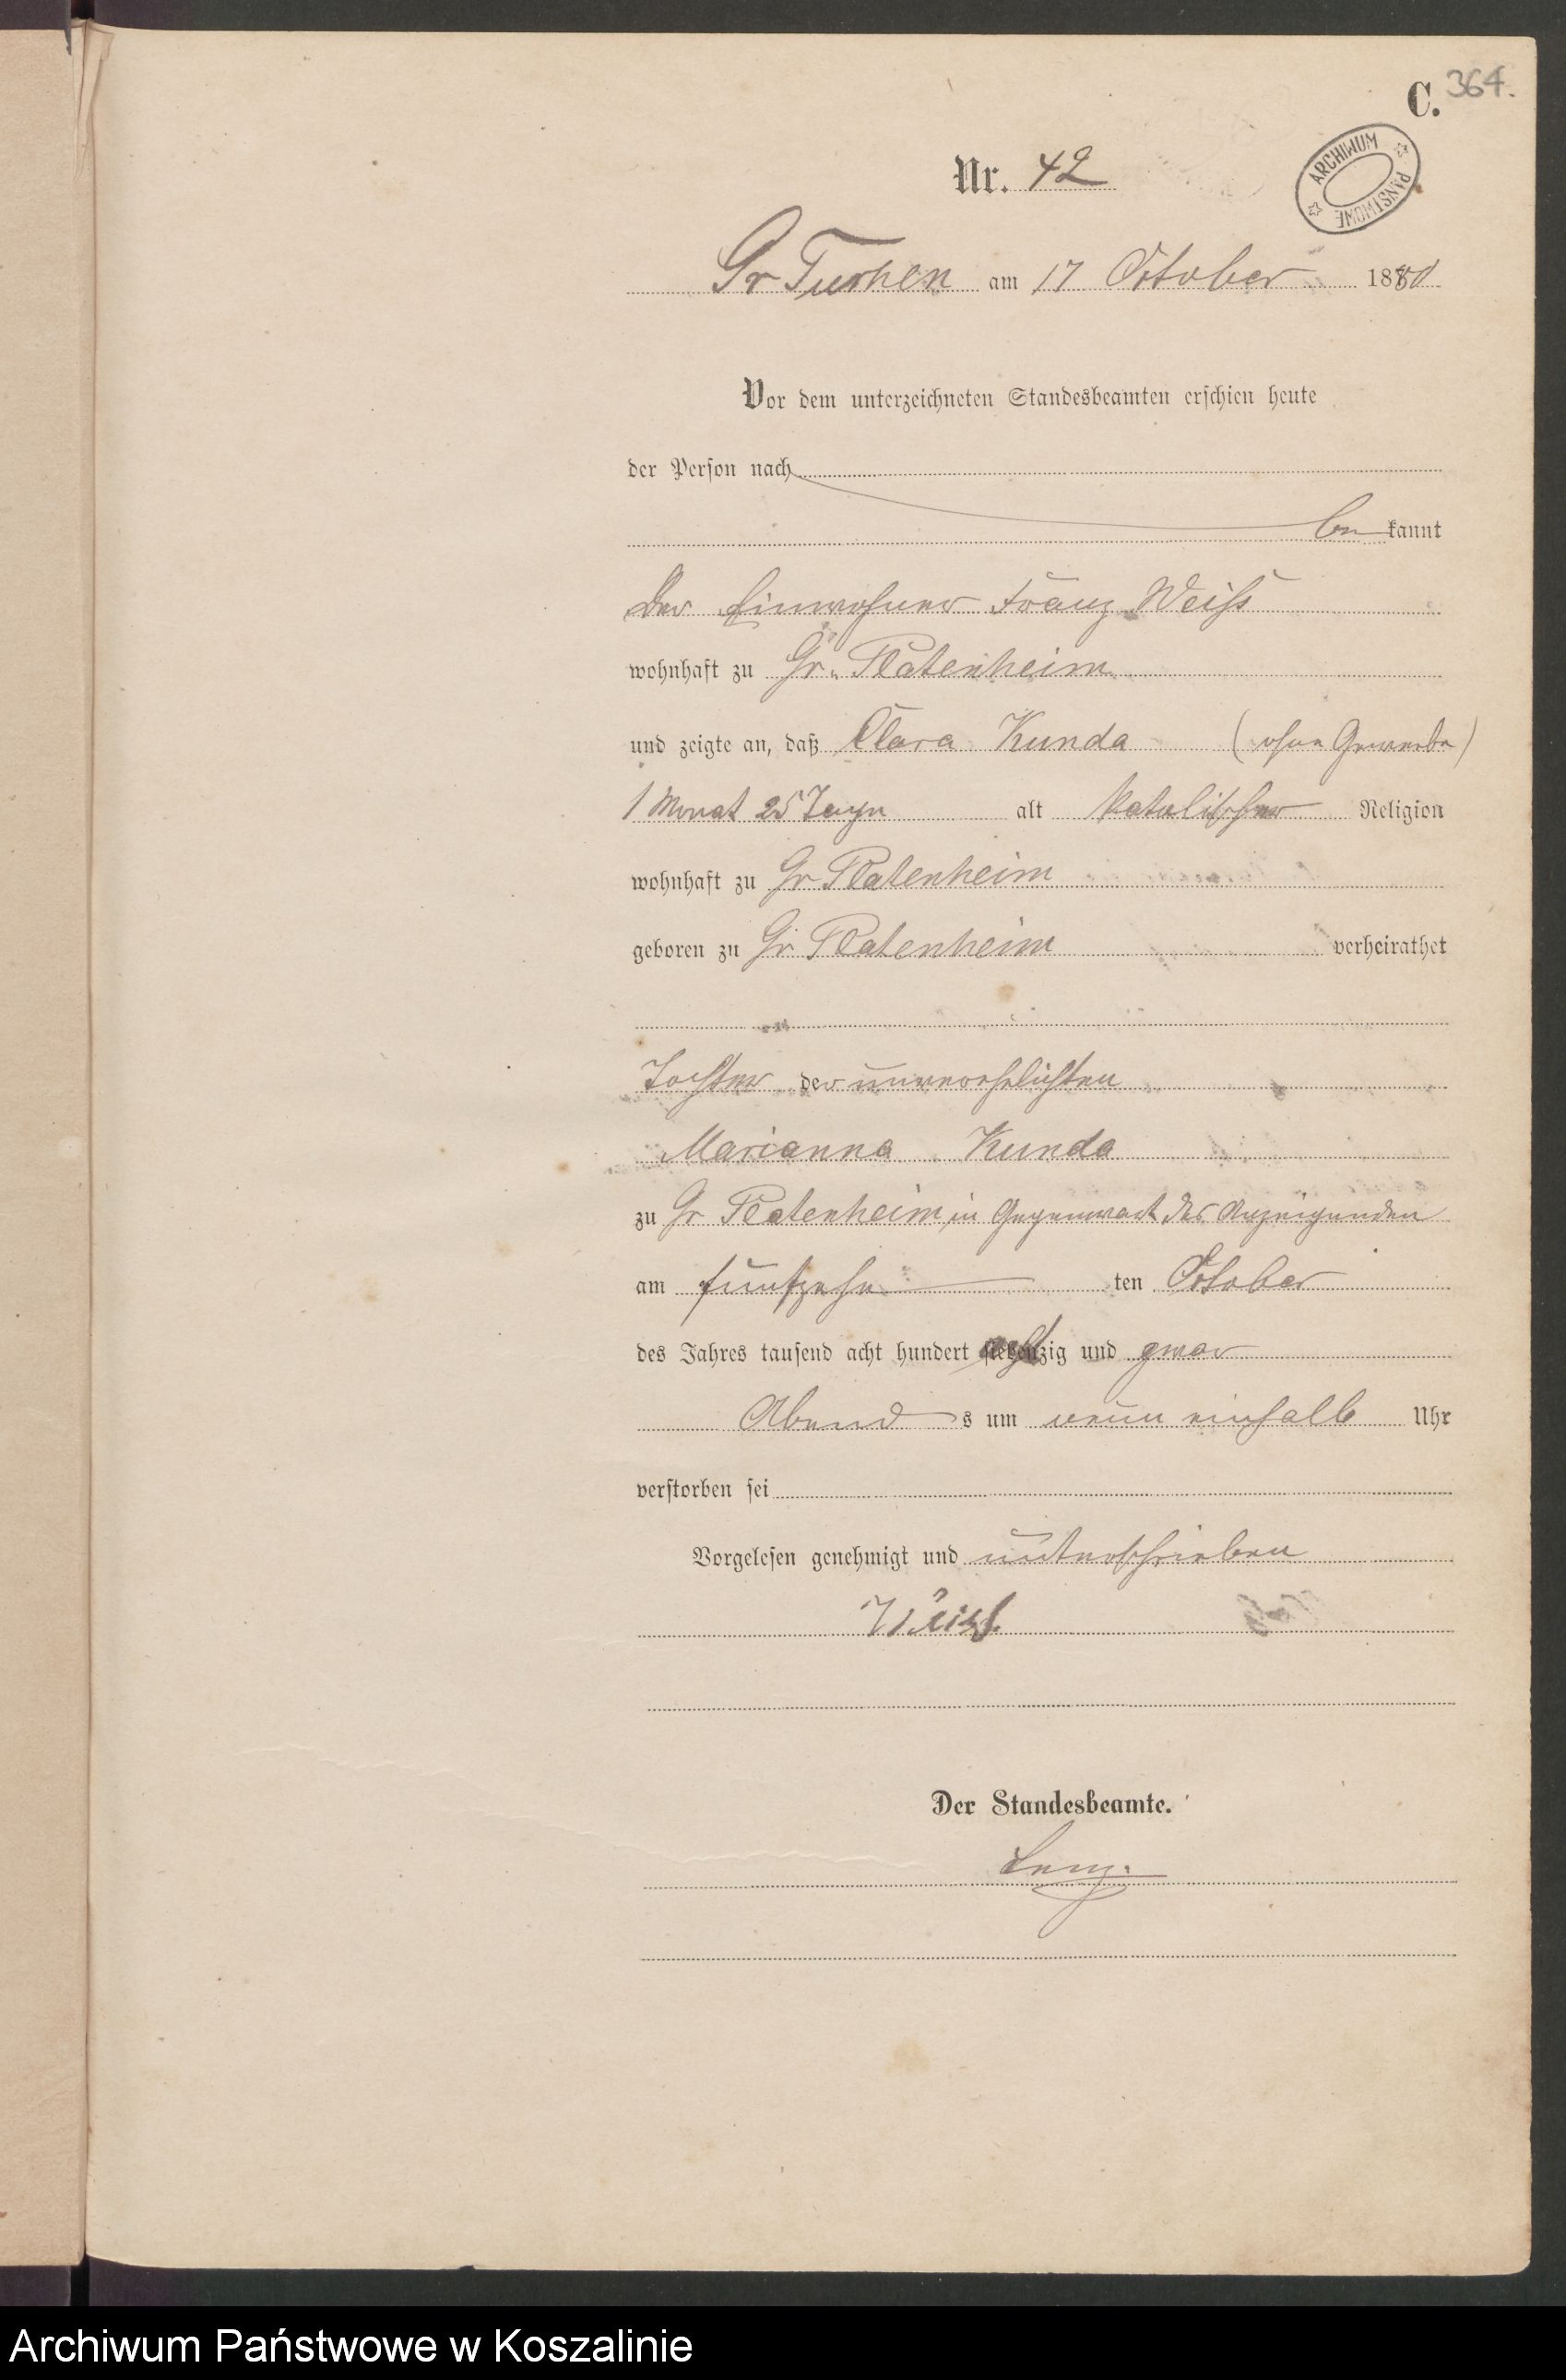 C. 364.
ARCHIWUM PAŃSTWOWE
Nr. 42
Gr Tuchen am 17 October 1880
Vor dem unterzeichneten Standesbeamten erschien heute
der Person nach
be kannt
der Einwohner Franz Weiß
wohnhaft zu Gr. Platenheim
und zeigte an, daß Clara Kunda (ohne Gewerbe)
1 Monat 25 Tage alt katolischer Religion
wohnhaft zu Gr Platenheim
geboren zu Gr Platenheim verheirathet
Tochter der unverehelichten
Marianna Kunda
zu Gr Platenheim in Gegenwart des Anzeigenden
am fünfzehn ten October
des Jahres tausend acht hundert achtzig und zwar
Abend s um neun einhalb Uhr
verstorben sei
Vorgelesen genehmigt und unterschrieben
Weiß.
Der Standesbeamte.
Archiwum Państwowe w Koszalinie